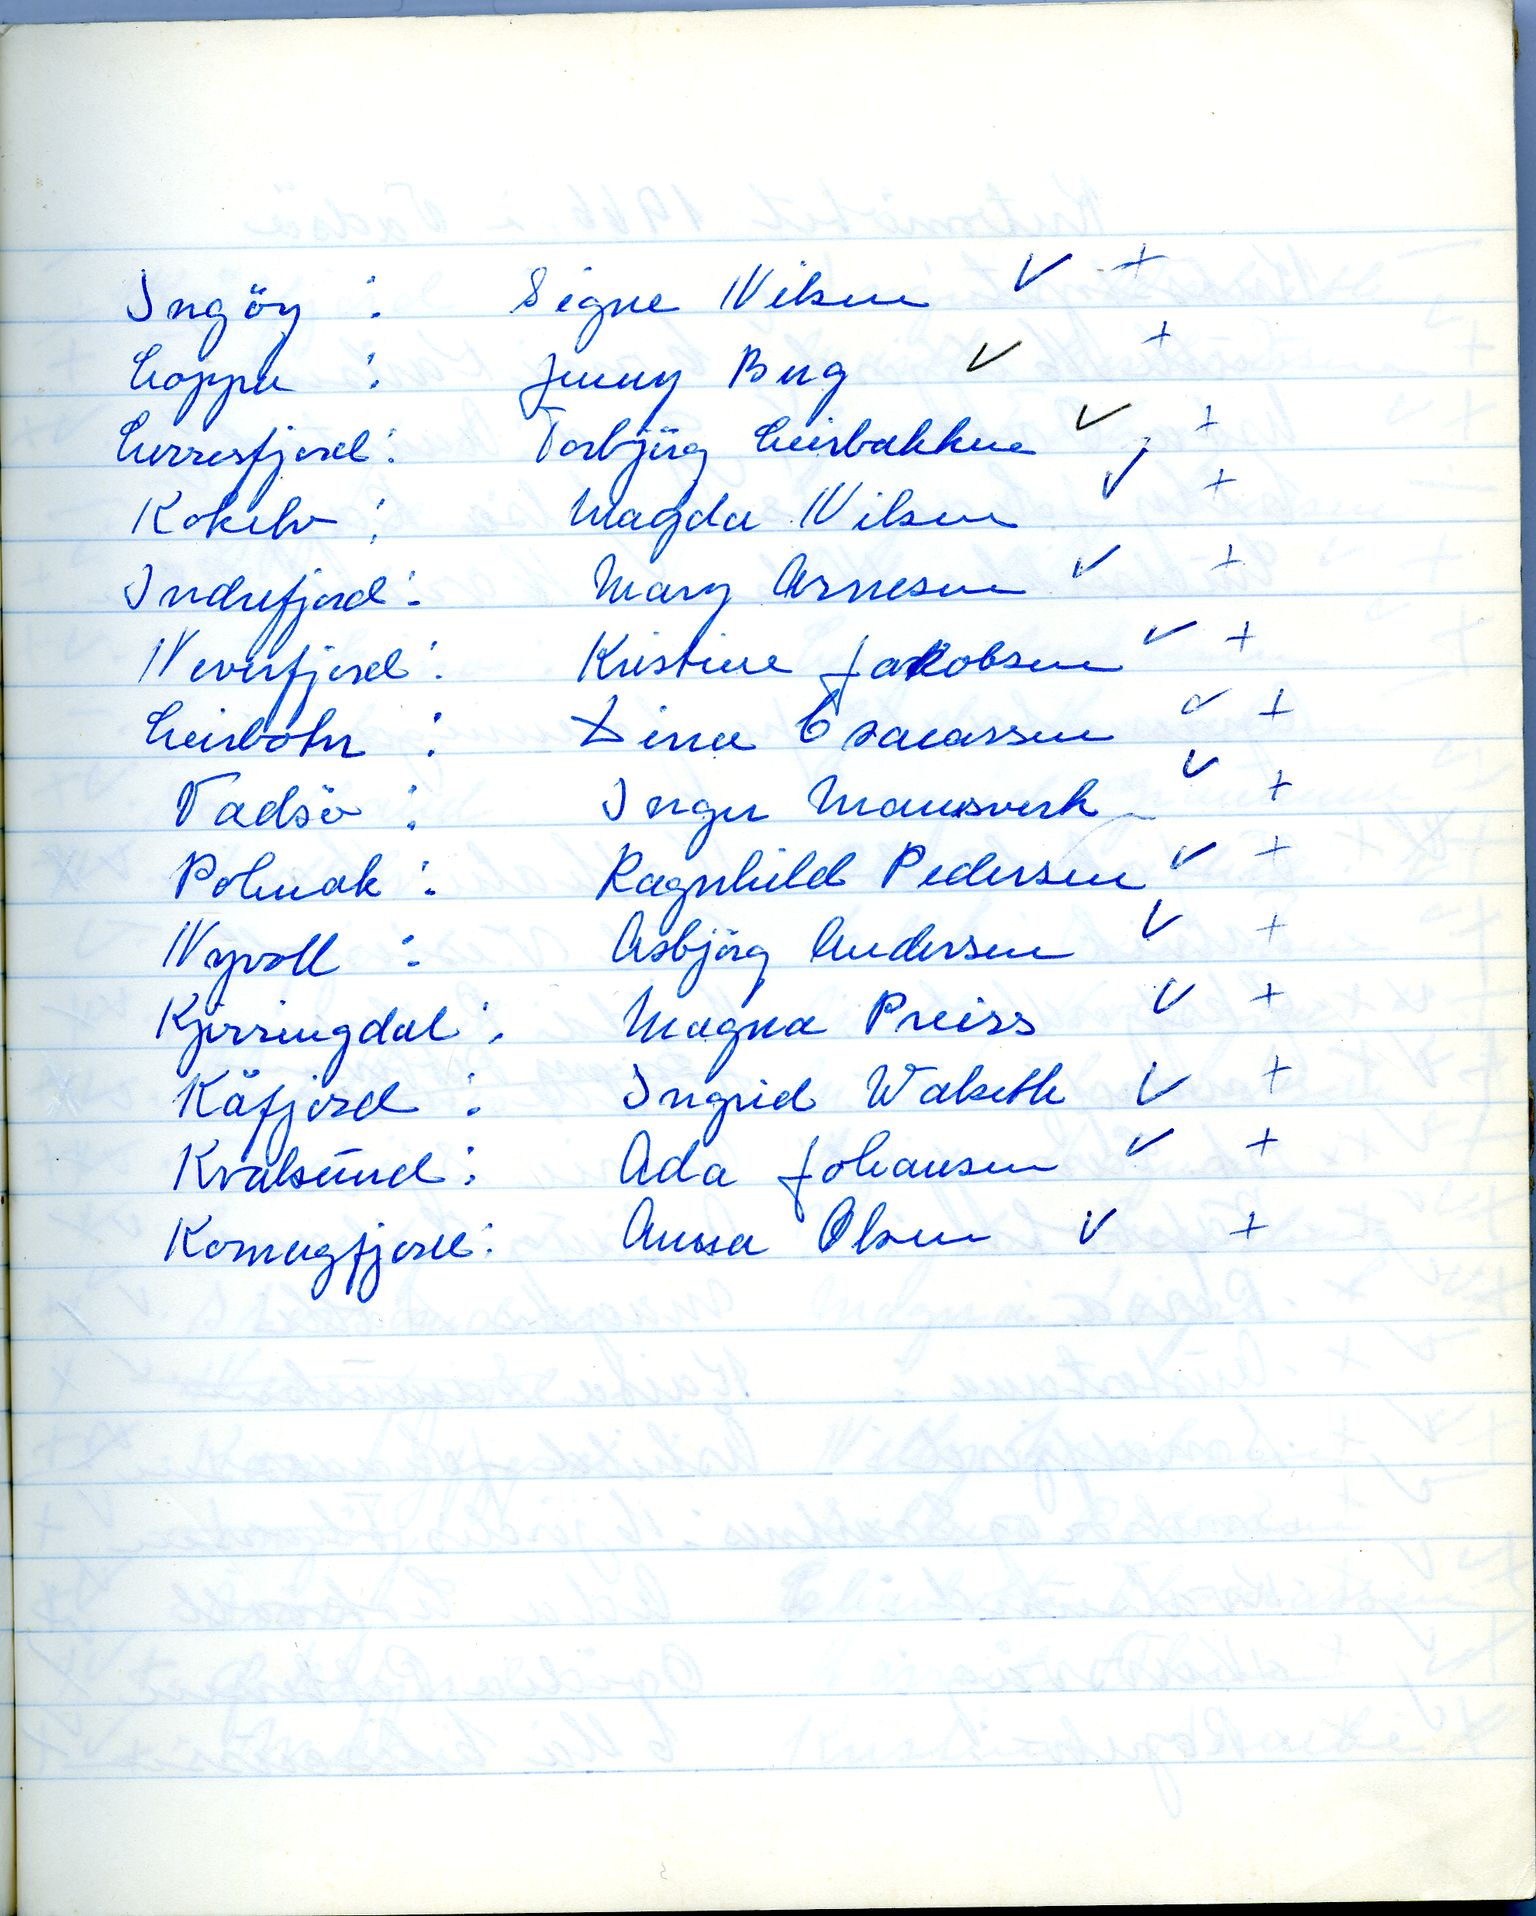 Ingöy : Signe Nilsen ✓ +
Loppa : Jenny Berg ✓ +
Lerresfjord : Torbjörg Leirbakken ✓ +
Kokelv : Magda Nilsen ✓ +
Indrefjord : Mary Arnesen ✓ +
Neverfjord : Kristine Jakobsen ✓ +
Leirbotn : Dina Esaiassen ✓ +
Vadsö : Inger Mansverk ✓ +
Polmak : Ragnhild Pedersen ✓ +
Nyvoll : Asbjörg Andersen ✓ +
Kjerringdal : Magna Preiss ✓ +
Kåfjord : Ingrid Walseth ✓ +
Kvalsund : Ada Johansen ✓ +
Komagfjord : Anna Olsen ✓ +